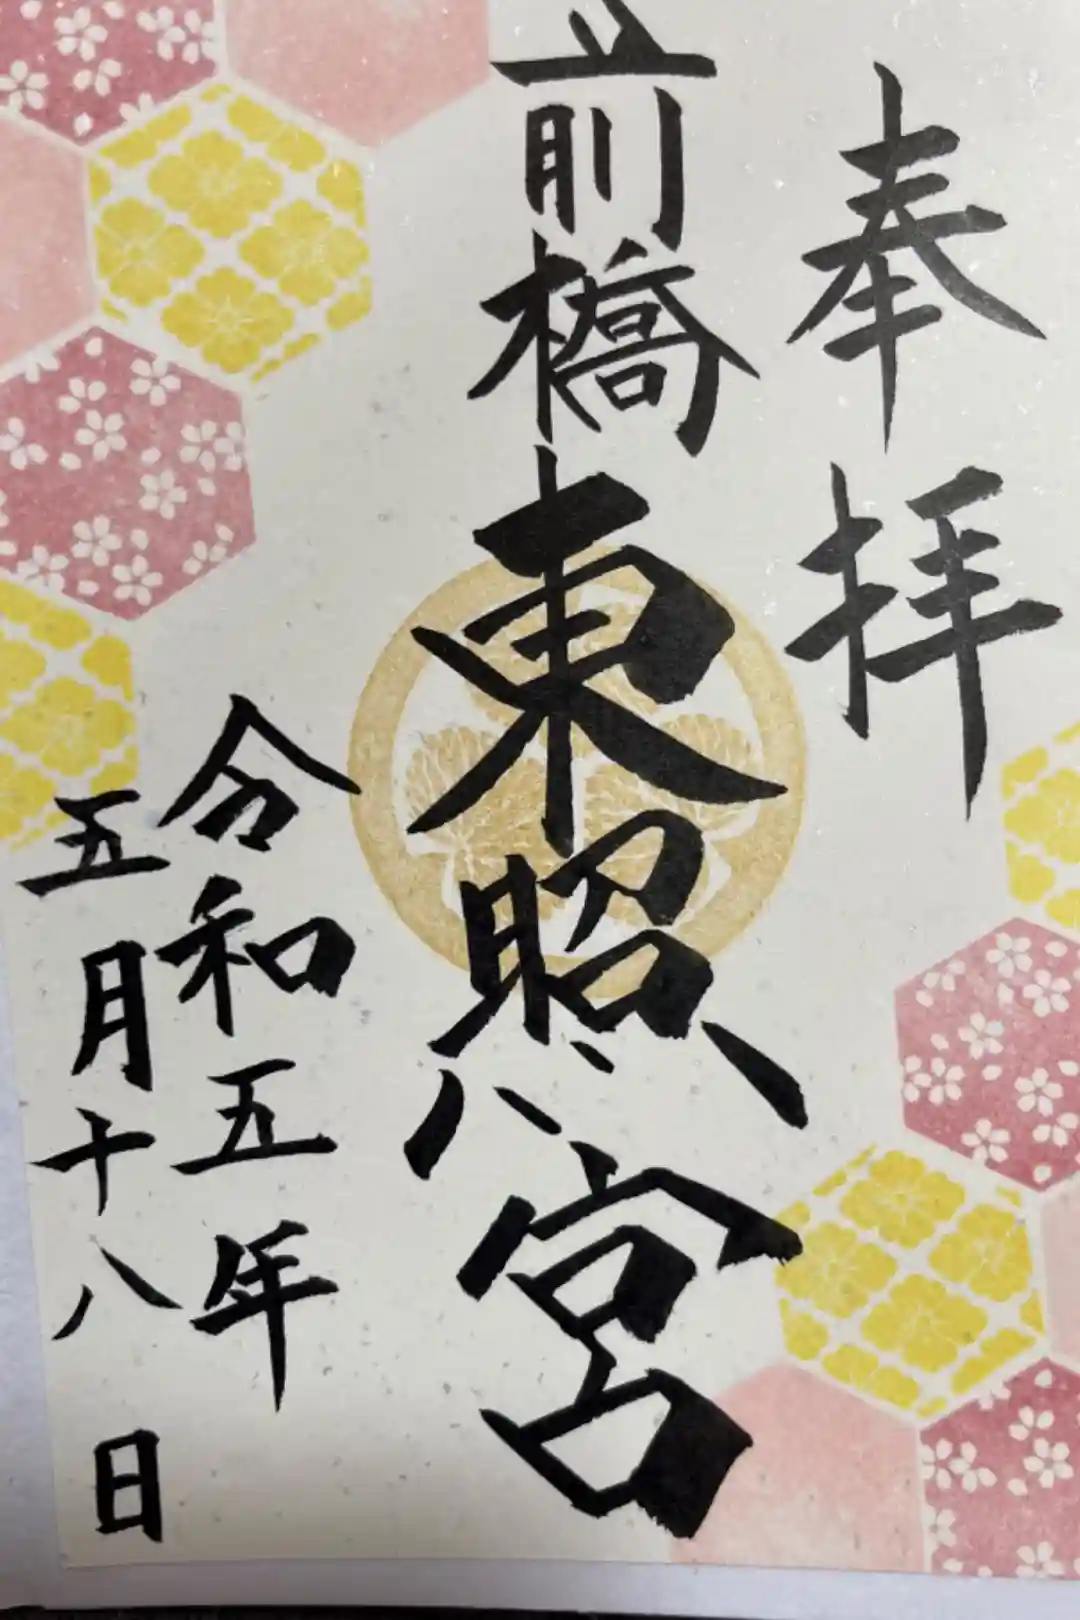 奉拝
前橋東照宮
令和五年
五月十八日